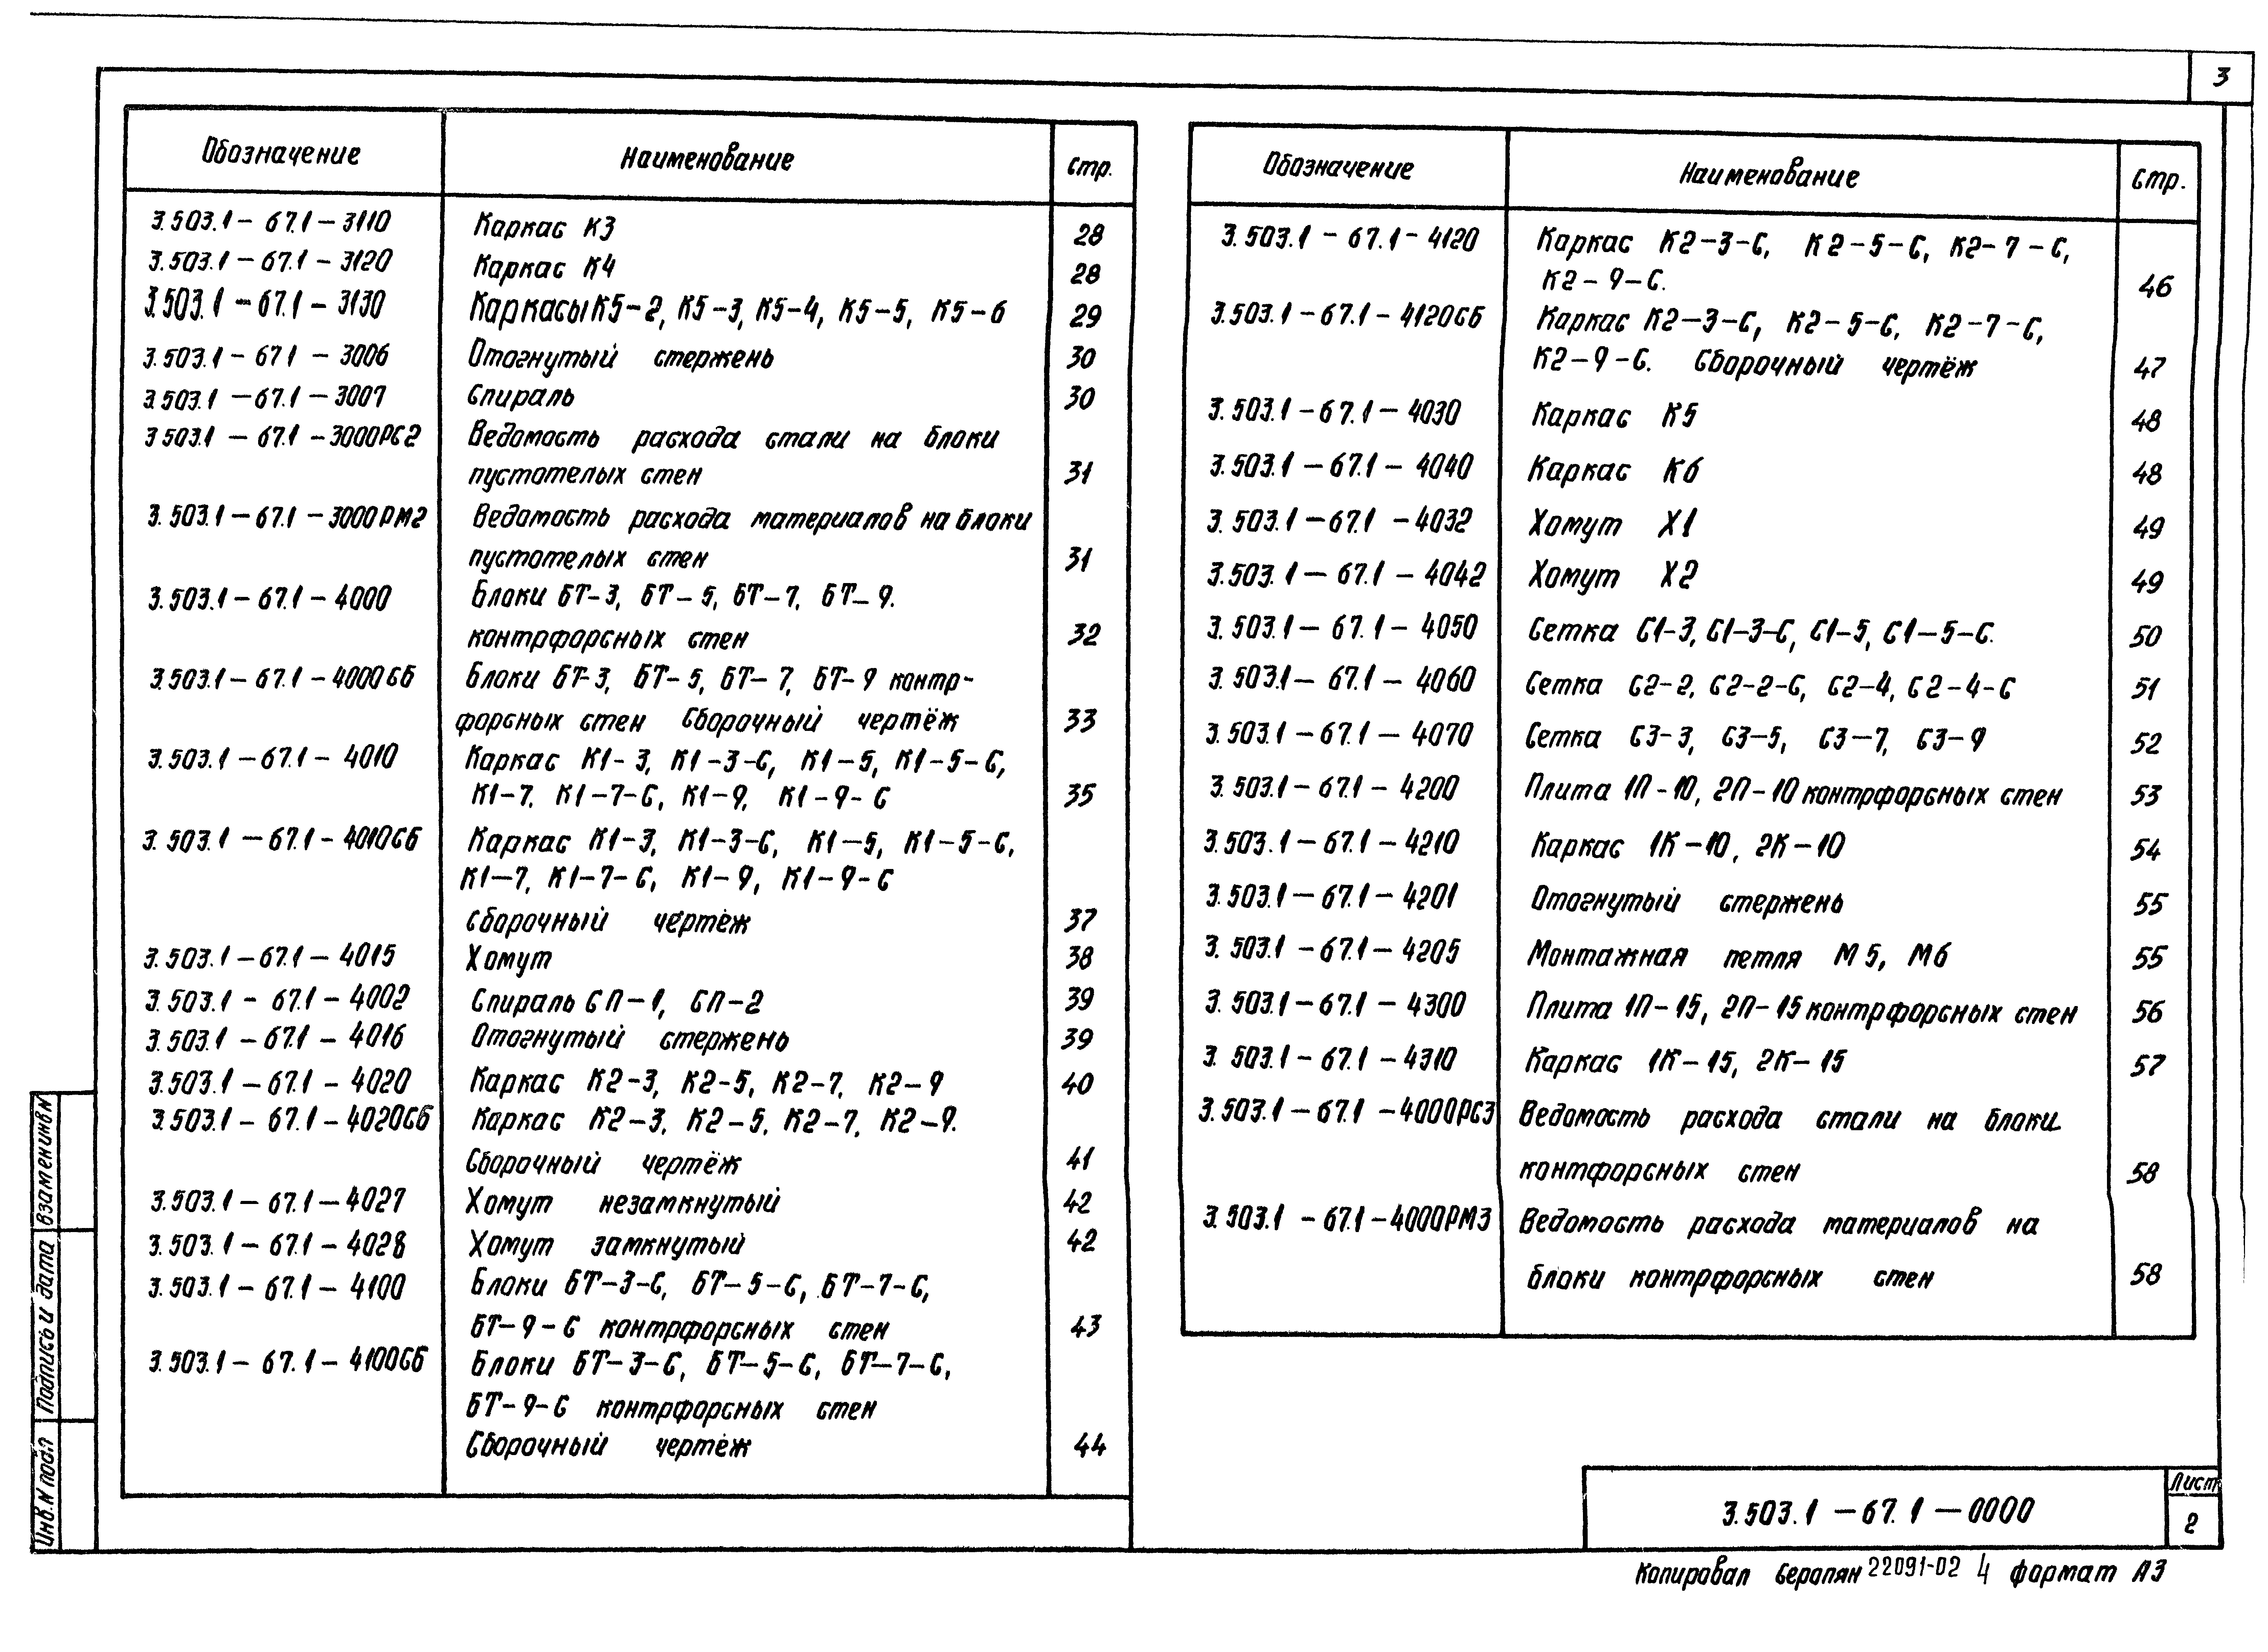 3
Обозначение Наименование стр.
3.503.1-67.1-3110 Каркас К3 28
3.503.1-67.1-3120 Каркас К4 28
3.503.1-67.1-3130 Каркасы К5-2, К5-3, К5-4, К5-5, К5-6 29
3.503.1-67 1-3006 Отогнутый стержень 30
3.503.1-67.1-3007 Спираль 30
3 503.1-67.1-3000РС2 Ведомость расхода стали на блоки
пустотелых стен 31
3.503.1-67.1-3000РМ2 Ведомость расхода материалов на блоки
пустотелых стен 31
3.503.1-67.1-4000 Блоки БТ-3, БТ-5, БТ-7, БТ-9.
контрфорсных стен 32
3.503.1-67.1-4000СБ Блоки БТ-3, БТ-5, БТ-7, БТ-9 контр-
форсных стен Сборочный чертёж 33
3.503.1-67.1-4010 Каркас К1-3, К1-3-С, К1-5, К1-5-С,
К1-7, К1-7-С, К1-9, К1-9-С 35
3.503.1-67.1-4010СБ Каркас К1-3, К1-3-С, К1-5, К1-5-С,
К1-7, К1-7-С, К1-9, К1-9-С
Сборочный чертёж 37
3.503.1-67.1-4015 Хомут 38
3.503.1-67.1-4002 Спираль СП-1, СП-2 39
3.503.1-67.1-4016 Отогнутый стержень 39
3.503.1-67.1-4020 Каркас К2-3, К2-5, К2-7, К2-9 40
3.503.1-67.1-4020СБ Каркас К2-3, К2-5, К2-7, К2-9.
Сборочный чертёж 41
3.503.1-67.1-4027 Хомут незамкнутый 42
3.503.1-67.1-4028 Хомут замкнутый 42
3.503.1-67.1-4100 Блоки БТ-3-С, БТ-5-С, БТ-7-С,
БТ-9-С контрфорсных стен 43
3.503.1-67.1-4100СБ Блоки БТ-3-С, БТ-5-С, БТ-7-С,
БТ-9-С контрфорсных стен
Сборочный чертёж 44
Обозначение Наименование стр.
3.503.1-67.1-4120 Каркас К2-3-С, К2-5-С, К2-7-С,
К2-9-С. 46
3.503.1-67.1-4120СБ Каркас К2-3-С, К2-5-С, К2-7-С,
К2-9-С. Сборочный чертёж 47
3.503.1-67.1-4030 Каркас К5 48
3.503.1-67.1-4040 Каркас К6 48
3.503.1-67.1-4032 Хомут Х1 49
3.503.1-67.1-4042 Хомут Х2 49
3.503.1-67.1-4050 Сетка С1-3, С1-3-С, С1-5, С1-5-С. 50
3.503.1-67.1-4060 Сетка С2-2, С2-2-С, С2-4, С2-4-С 51
3.503.1-67.1-4070 Сетка С3-3, С3-5, С3-7, С3-9 52
3.503.1-67.1-4200 Плита 1П-10, 2П-10 контрфорсных стен 53
3.503.1-67.1-4210 Каркас 1К-10, 2К-10 54
3.503.1-67.1-4201 Отогнутый стержень 55
3.503.1-67.1-4205 Монтажная петля М5, М6 55
3.503.1-67.1-4300 Плита 1П-15, 2П-15 контрфорсных стен 56
3.503.1-67.1-4310 Каркас 1К-15, 2К-15 57
3.503.1-67.1-4000РС3 Ведомость расхода стали на блоки
контфорсных стен 58
3.503.1-67.1-4000РМ3 Ведомость расхода материалов на
блоки контрфорсных стен 58
Инв.N подл Подпись и дата Взамен инв N
3.503.1-67.1-0000 Лист
2
Копировал Серопян 22091-02 4 формат А3